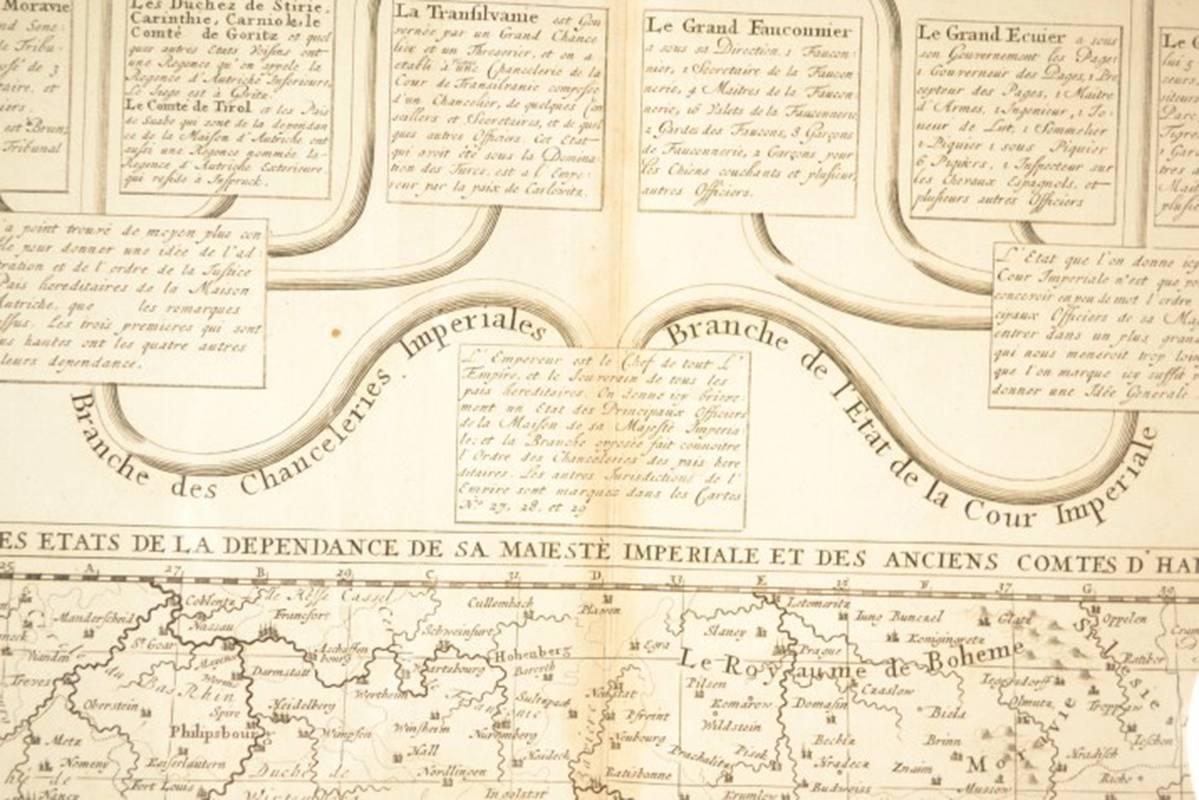 Moravie
nd Sene
le Tribu
osé de 3
taire, et
iers.
est Brun,
Tribunal
Les Duchez de Stirie,
Carinthie, Carniole, le
Comté de Goritz et quel
ques autres Etats Voisins ont
une Regence qu'on appele la
Regence d'Autriche Inferieure,
Le Siege est à Gritz.
Le Comté de Tirol et les Pais
de Suabe qui sont de la dependan
ce de la Maison d'Autriche ont
aussi une Regence nommée la
Regence d'Autriche Exterieure
qui reside à Inspruck.
La Transilvanie est Gou
vernée par un Grand Chance
lier et un Thresorier, et on a
etabli à une Chancelerie de la
Cour de Transilvanie composée
d'un Chancelier, de quelques Con
seillers et Secretaires, et de quel
ques autres Officiers. Cet Etat
qui avoit été sous la Domina
tion des Turcs, est a l'Empe
reur par la paix de Carlowitz.
Le Grand Fauconnier
a sous sa Direction, 1 Faucon
nier, 1 Secretaire de la Faucon
nerie, 4 Maitres de la Faucon
nerie, 16 Valets de la Fauconnerie
2 Gardes des Faucons, 8 Garçons
de Fauconnerie, 2 Garçons pour
les Chiens couchants et plusieurs
autres Officiers.
Le Grand Ecuier a sous
son Gouvernement les Pages
1 Gouverneur des Pages, 1 Pre
cepteur des Pages, 1 Maitre
d'Armes, 1 Ingenieur, 1 Jo
ueur de Lut, 1 Sommelier
1 Piquier 1 sous Piquier
6 Piquers, 1 Inspecteur sur
les Chevaux Espagnols, et
plusieurs autres Officiers
Le G
lui 5
a point trouvé de moyen plus con
ble pour donner une idée de l'ad
tration et de l'ordre de la Justice
Pais hereditaires de la Maison
Autriche, que les remarques
ssus. Les trois premieres qui sont
us hautes ont les quatre autres
leurs dependance.
L'Etat que l'on donne icy
Cour Imperiale n'est que po
concevoir en peu de mot l'ordre
cipaux Officiers de sa Ma
entrer dans un plus grand
qui nous meneroit trop loin
que l'on marque icy suffit p
donner une Idée Generale
Branche des Chanceleries Imperiales
Branche de l'Etat de la Cour Imperiale
L'Empereur est le Chef de tout L'
Empire, et le Souverain de tous les
pais hereditaires. On donne icy briéve
ment un Etat des Principaux Officiers
de la Maison de sa Majesté Imperia
le; et la Branche opposée fait connoitre
l'Ordre des Chanceleries des pais here
ditaires. Les autres Jurisdictions de l'
Empire sont marquez dans les Cartes
N° 27, 28, et 29
ES ETATS DE LA DEPENDANCE DE SA MAIESTÉ IMPERIALE ET DES ANCIENS COMTES D'HA
25 A. 27 B. 29 C. 31 D. 33 E. F. 37 G. 39
Coblentz Hesse Cassel Cullembach Plawen Letomaritz Iung Bunczel Glatz Oppelen
Manderscheid Nassau Francfort Schweinfurt Slaney Konigingretz Silesie
St. Goar Aschaffenbourg Hohenberg Egra Prague Ratibor
Le Royaume de Boheme
Treves Darmstatt Wartzburg Bareith Pilsen Czaslow Iegersdorff
du Bas Rhin Worms Wertheim Sultzpach Neustat Komarow Domasin Olmutz Troppaw
Oberstein Spire Heidelberg Winsheim Nuremberg Pfreint Wildstein Biels
Philipsbourg Wimpfen Neubourg Bechin Brinn Moravie
Metz Hall Naideck Prachalitz Pisek Hradecz Hradisch
Nomeny Keiserlautern Duché de Nordlingen Ratisbonne Znaim
Nancy Fort Louis Ingolstat Krumlow Budweiss